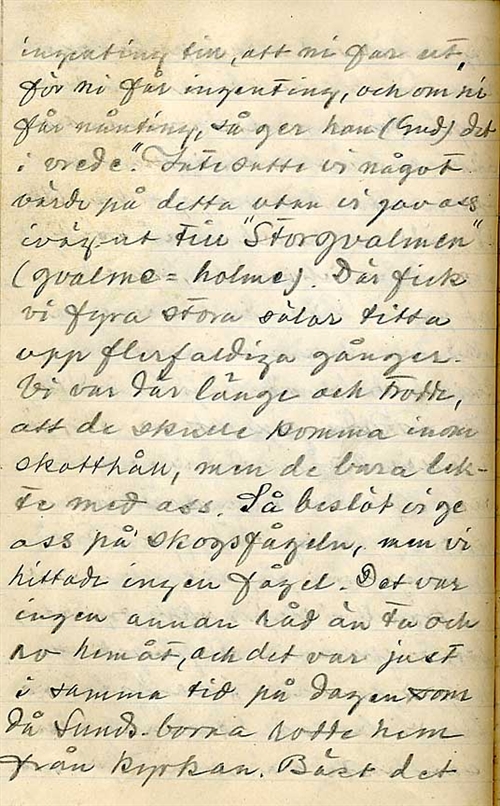 ingenting till, att ni far ut,
för ni får ingenting, och om ni
får nånting, så ger han (Gud) det
i vrede". Inte satte vi något
värde på detta utan vi gav oss
iväg ut till "Storgvalmen"
(gvalme = holme). Där fick
vi fyra stora sälar titta
upp flerfaldiga gånger.
Vi var där länge och trodde,
att de skulle komma inom
skotthåll, men de bara lek-
te med oss. Så beslöt vi ge
oss på skogsfågeln, men vi
hittade ingen fågel. Det var
ingen annan råd än ta och
ro hemåt, och det var just
i samma tid på dagen som
då Sunds-borna rodde hem
från kyrkan. Bäst det